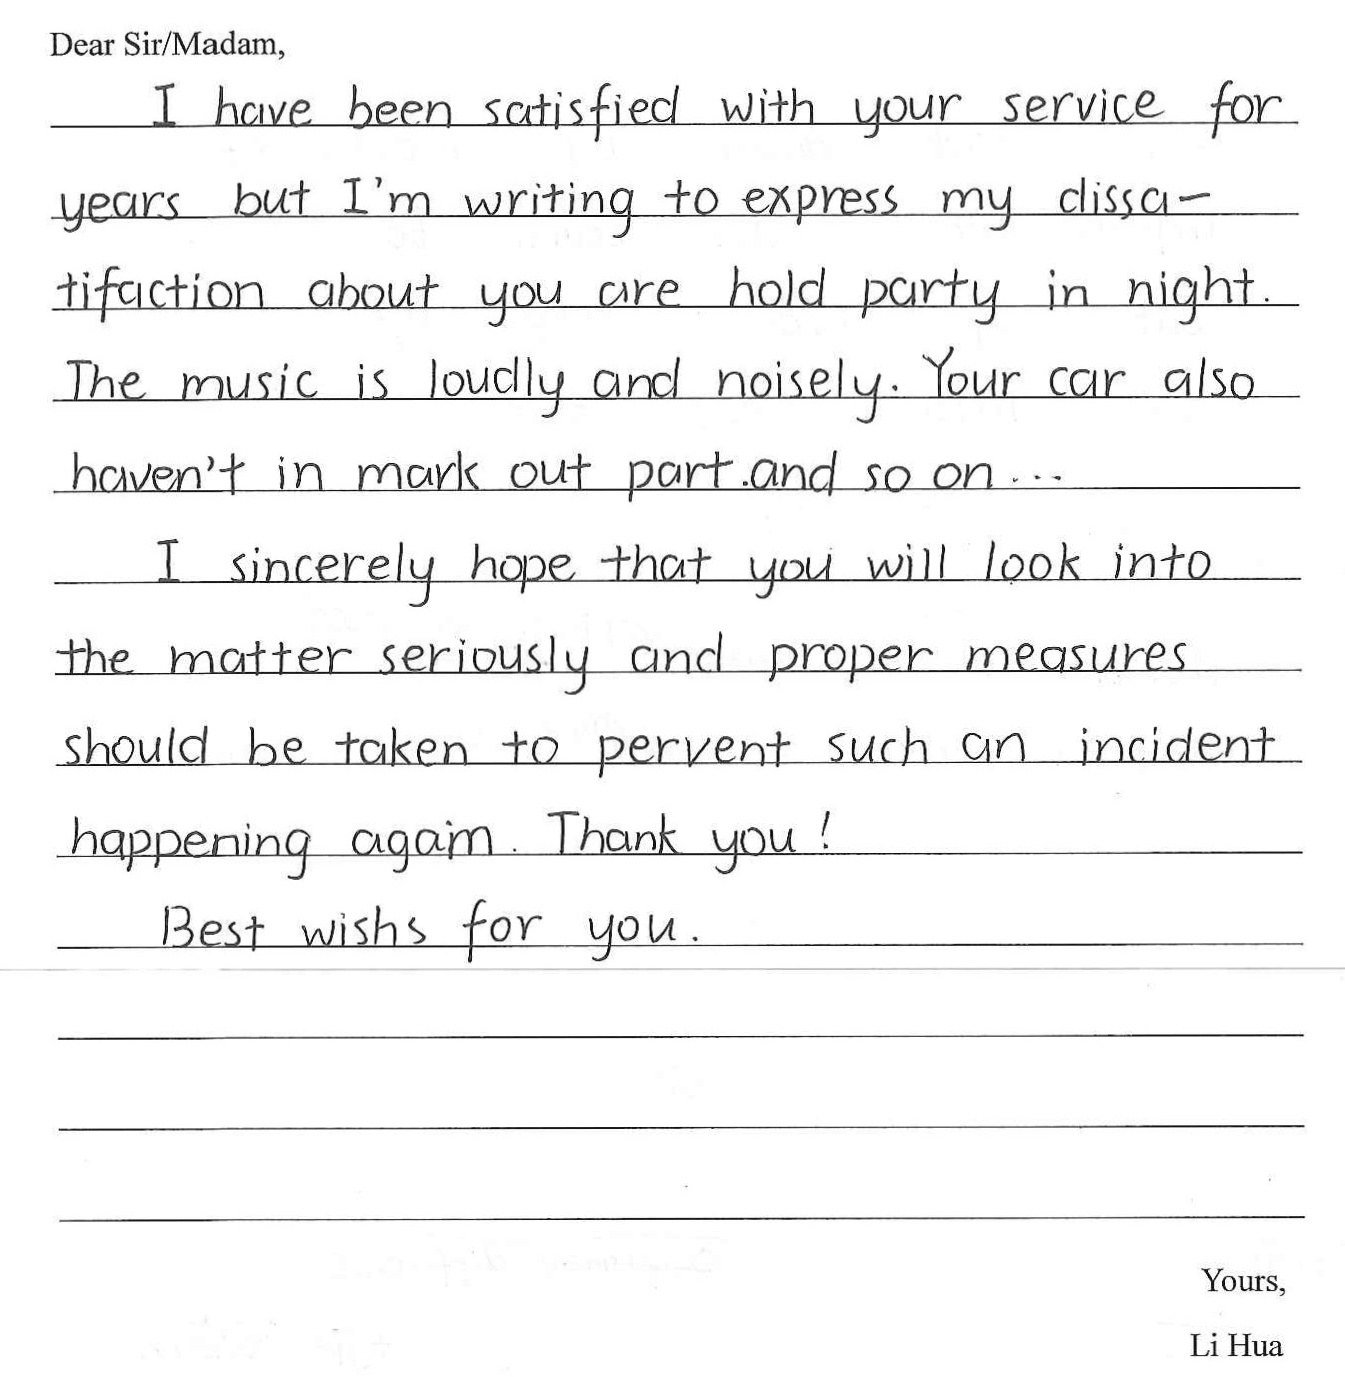 Dear Sir/Madam,
I have been satisfied with your service for
years but I'm writing to express my dissa-
tifaction about you are hold party in night.
The music is loudly and noisely. Your car also
haven't in mark out part.and so on...
I sincerely hope that you will look into
the matter seriously and proper measures
should be taken to pervent such an incident
happening again. Thank you!
Best wishs for you.
Yours,
Li Hua